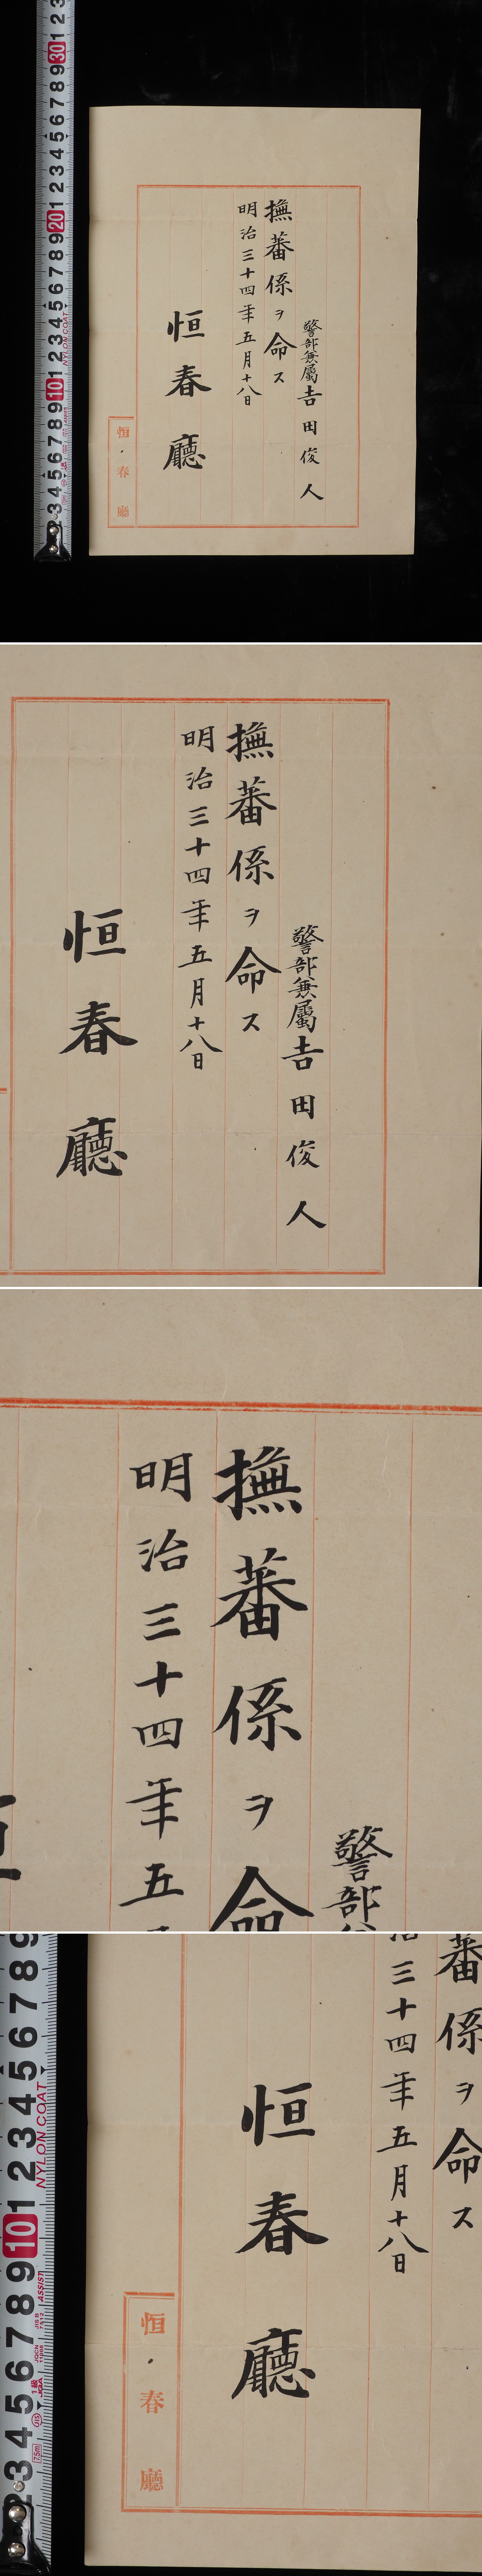 警部兼屬吉田俊人
撫蕃係ヲ命ス
明治三十四年五月十八日
恒春廳
恒春廳
警部兼屬吉田俊人
撫蕃係ヲ命ス
明治三十四年五月十八日
恒春廳
警部
撫蕃係ヲ命
明治三十四年五
蕃係ヲ命ス
治三十四年五月十八日
恒春廳
恒春廳
NYLON COAT